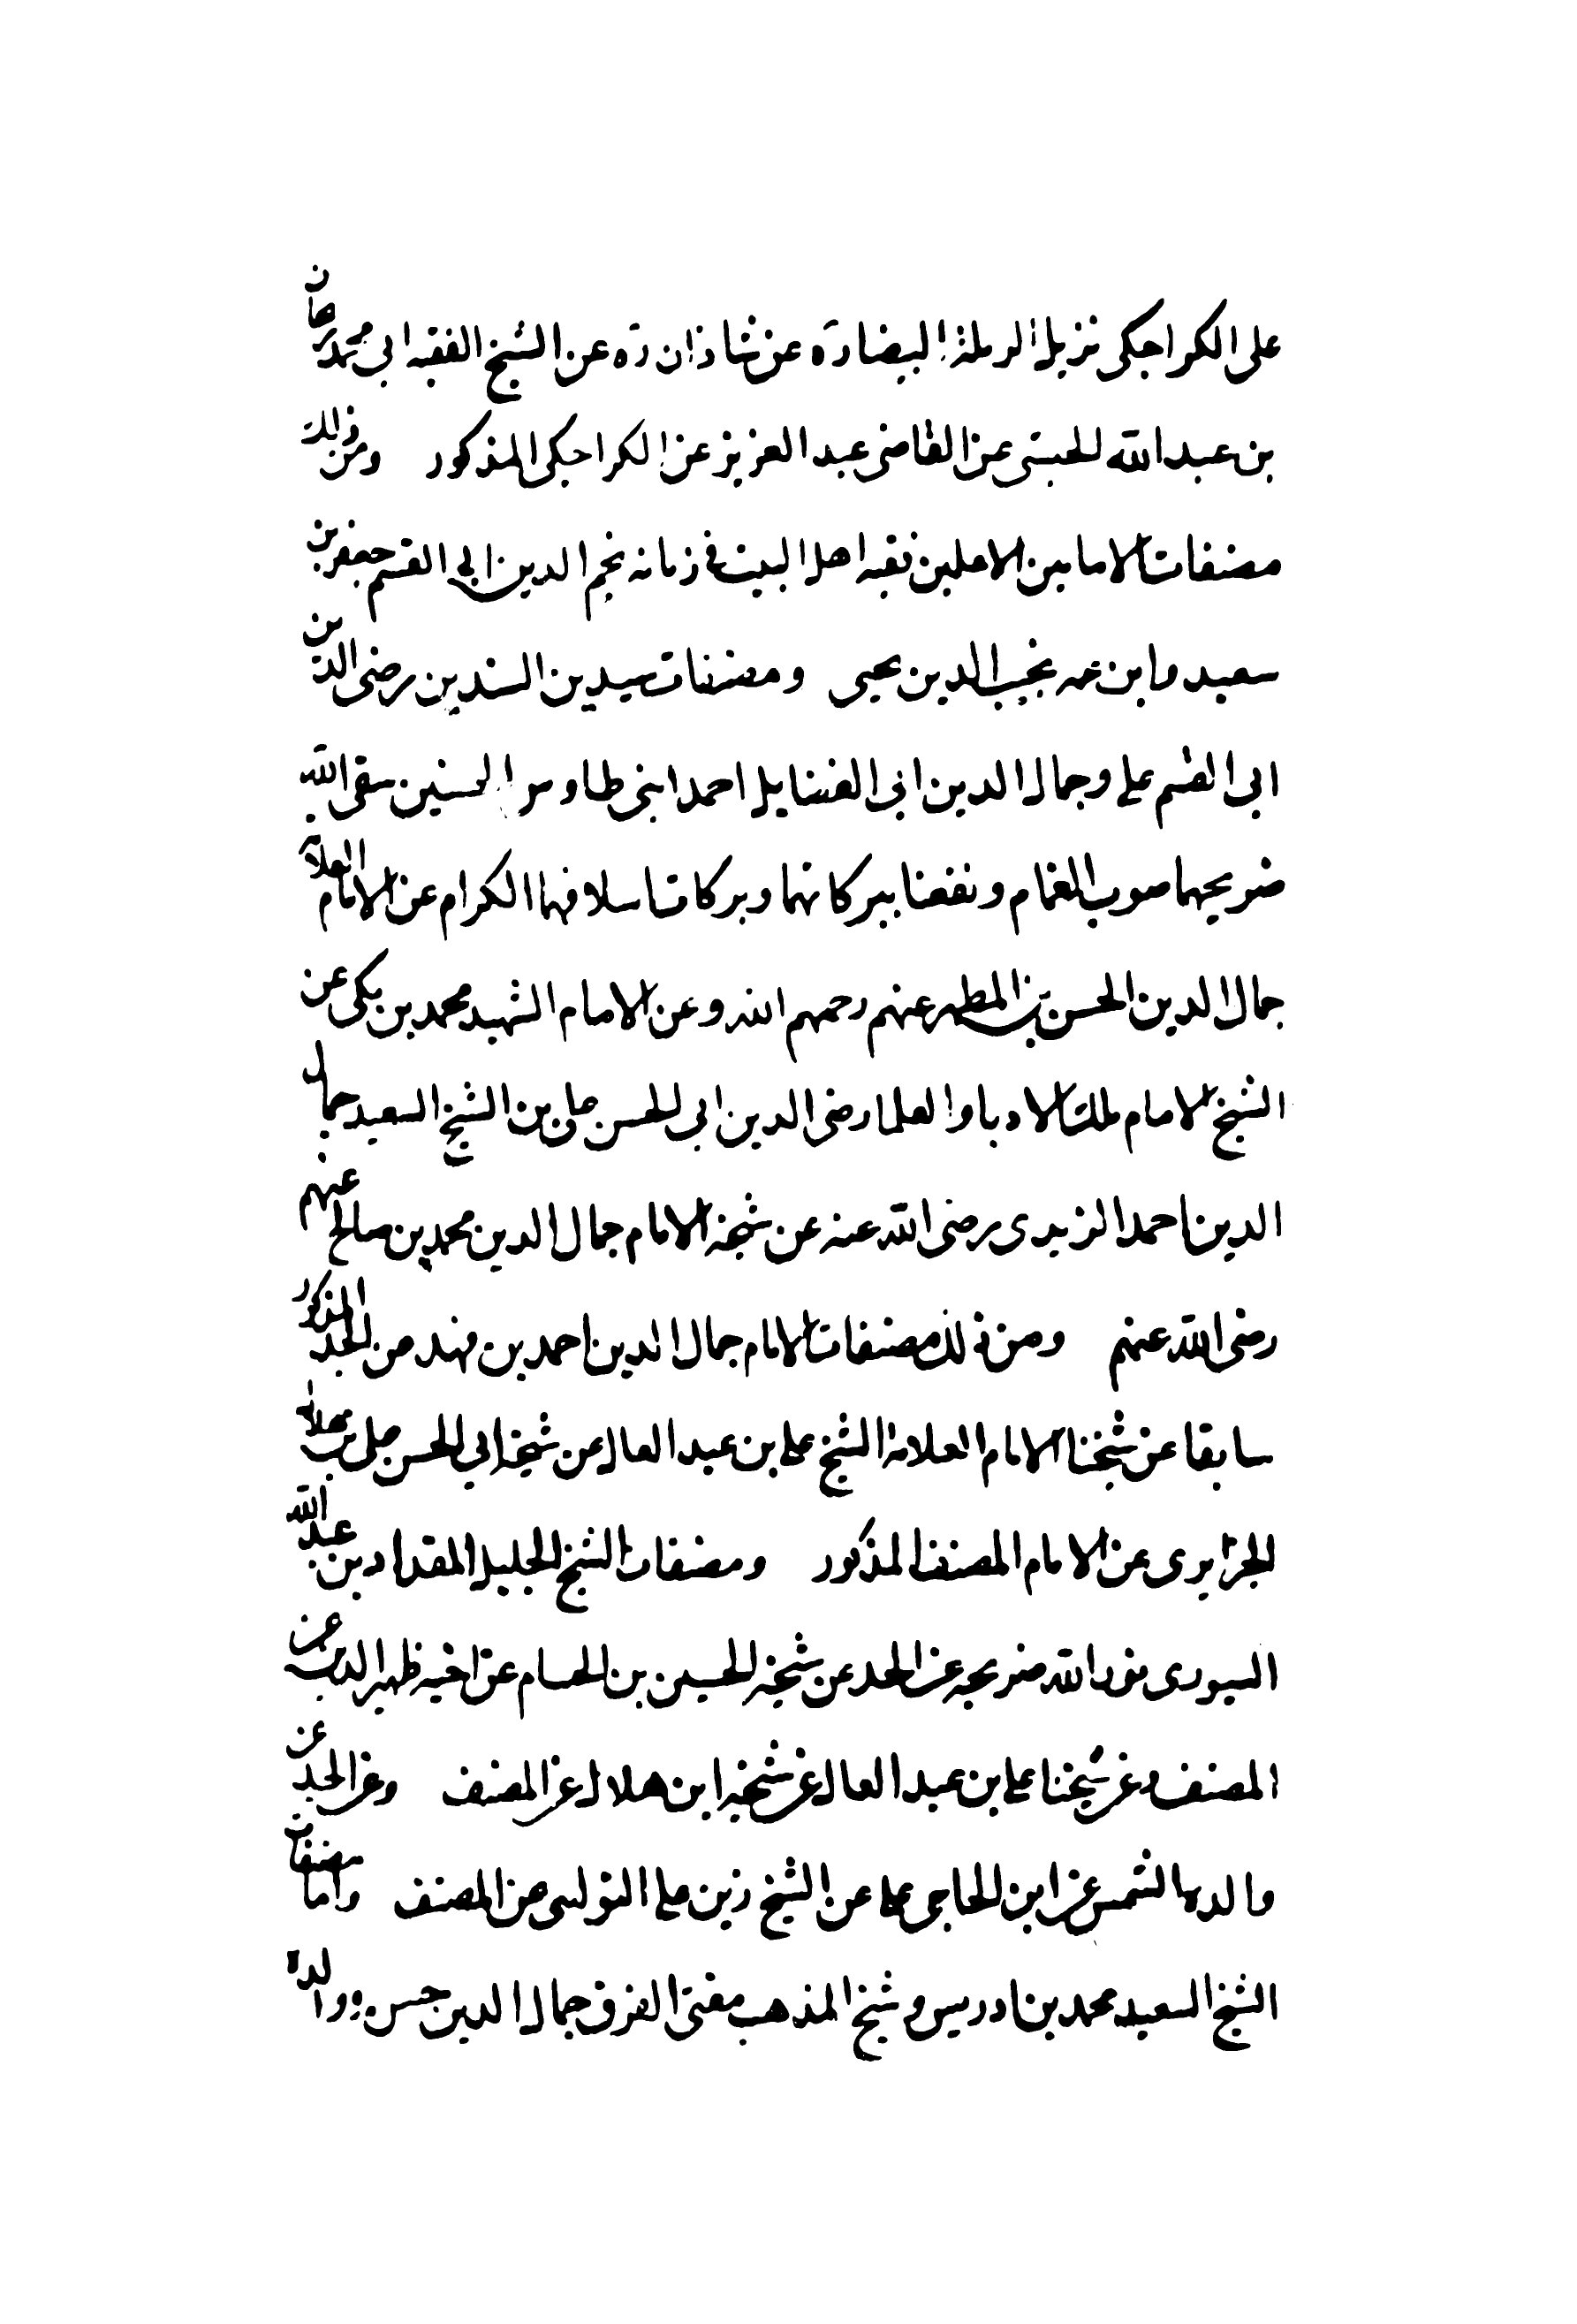 على الكراجكى نزيل الرملة البيضا ره عن شاذان ره عن الشيخ الفقيه ابى محمد ريحان
بن عبد الله الحبشى عن القاضى عبد العزيز عن الكراجكى المذكور ومن ذلك
مصنفات الامامين الاعلمين فقيه اهل البيت فى زمانه نجم الدين ابى القسم جعفر بن
سعيد وابن عمه نجيب الدين يحيى ومصنفات سيدين السندين رضى الدين
ابى القسم على وجمال الدين ابى الفضايل احمد ابنى طاوس الحسنين سقى الله
ضريحهما صوب الغمام ونفعنا ببركاتهما وبركات اسلافهما الكرام عن الامام العلامة
جمال الدين الحسن بن المطهر عنهم رحمهم الله وعن الامام الشهيد محمد بن مكى عن
الشيخ الامام ملك الادبا والعلما رضى الدين ابى الحسن على بن الشيخ السعيد جمال
الدين احمد المزيدى رضى الله عنه عن شيخه الامام جمال الدين محمد بن صالح عنهم
رضى الله عنهم ومن ذلك مصنفات الامام جمال الدين احمد بن فهد عن الجد المذكور
سابقا عن شيخنا الامام العلامة الشيخ على بن عبد العالى عن شيخه ابى الحسن على بن هلال
الجزايرى عن الامام المصنف المذكور ومصنفات الشيخ الجليل المقداد بن عبد الله
السيورى نور الله ضريحه عن الجد عن شيخه الحسين بن الحسام عن اخيه ظهير الدين عن
المصنف وعن شيخنا على بن عبد العالى عن شيخه ابن هلال عن المصنف وعن الجد عن
والده الشمس عن ابن الحاجى على عن الشيخ زين على التوليى عن المصنف واما مصنفات
الشيخ السعيد محمد بن ادريس وشيخ المذهب مفتى الفرق جمال الدين حسن ووالده